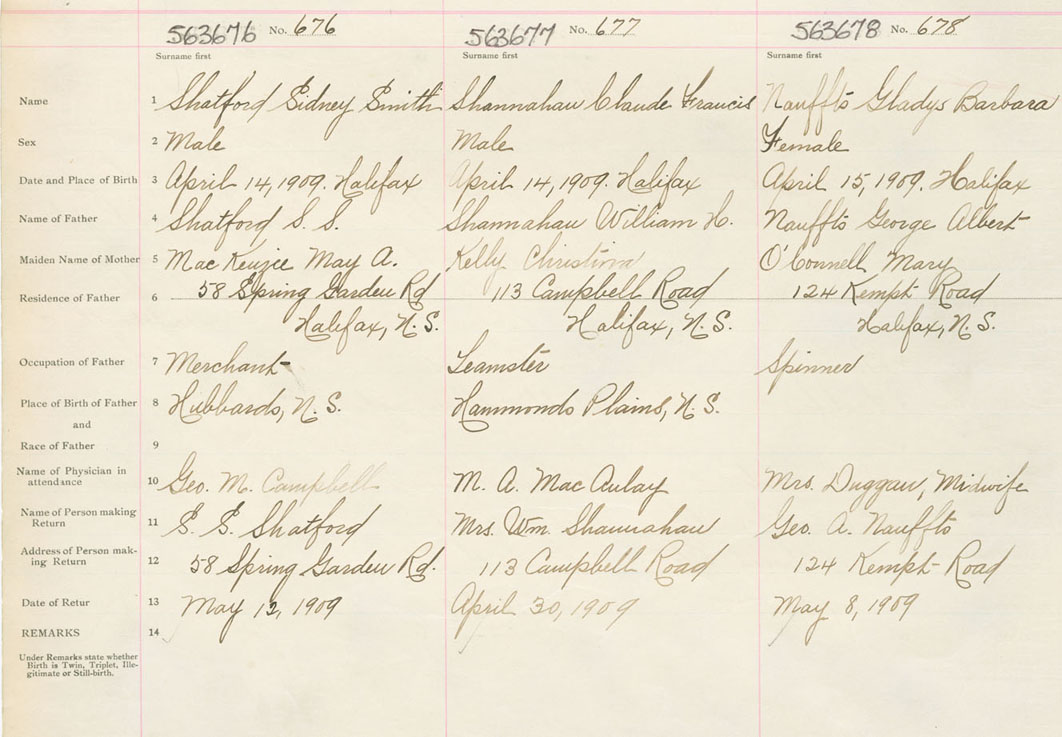 563676 No. 676 563677 No. 677 563678 No. 678
Surname first Surname first Surname first
Name 1 Shatford Sidney Smith Shannahan Claude Francis Nauffts Gladys Barbara
Sex 2 Male Male Female
Date and Place of Birth 3 April 14, 1909. Halifax April 14, 1909. Halifax April 15, 1909. Halifax
Name of Father 4 Shatford S. S. Shannahan William H. Nauffts George Albert
Maiden Name of Mother 5 MacKenzie May A. Kelly Christina O'Connell Mary
Residence of Father 6 58 Spring Garden Rd 113 Campbell Road 124 Kempt Road
Halifax, N. S. Halifax, N. S. Halifax, N. S.
Occupation of Father 7 Merchant Teamster Spinner
Place of Birth of Father 8 Hubbards, N. S. Hammonds Plains, N. S.
and
Race of Father 9
Name of Physician in
attendance 10 Geo. M. Campbell M. A. MacAulay Mrs. Duggan, Midwife
Name of Person making
Return 11 S. S. Shatford Mrs. Wm. Shannahan Geo. A. Nauffts
Address of Person mak-
ing Return 12 58 Spring Garden Rd. 113 Campbell Road 124 Kempt Road
Date of Retur 13 May 12, 1909 April 30, 1909 May 8, 1909
REMARKS 14
Under Remarks state whether
Birth is Twin, Triplet, Ille-
gitimate or Still-birth.